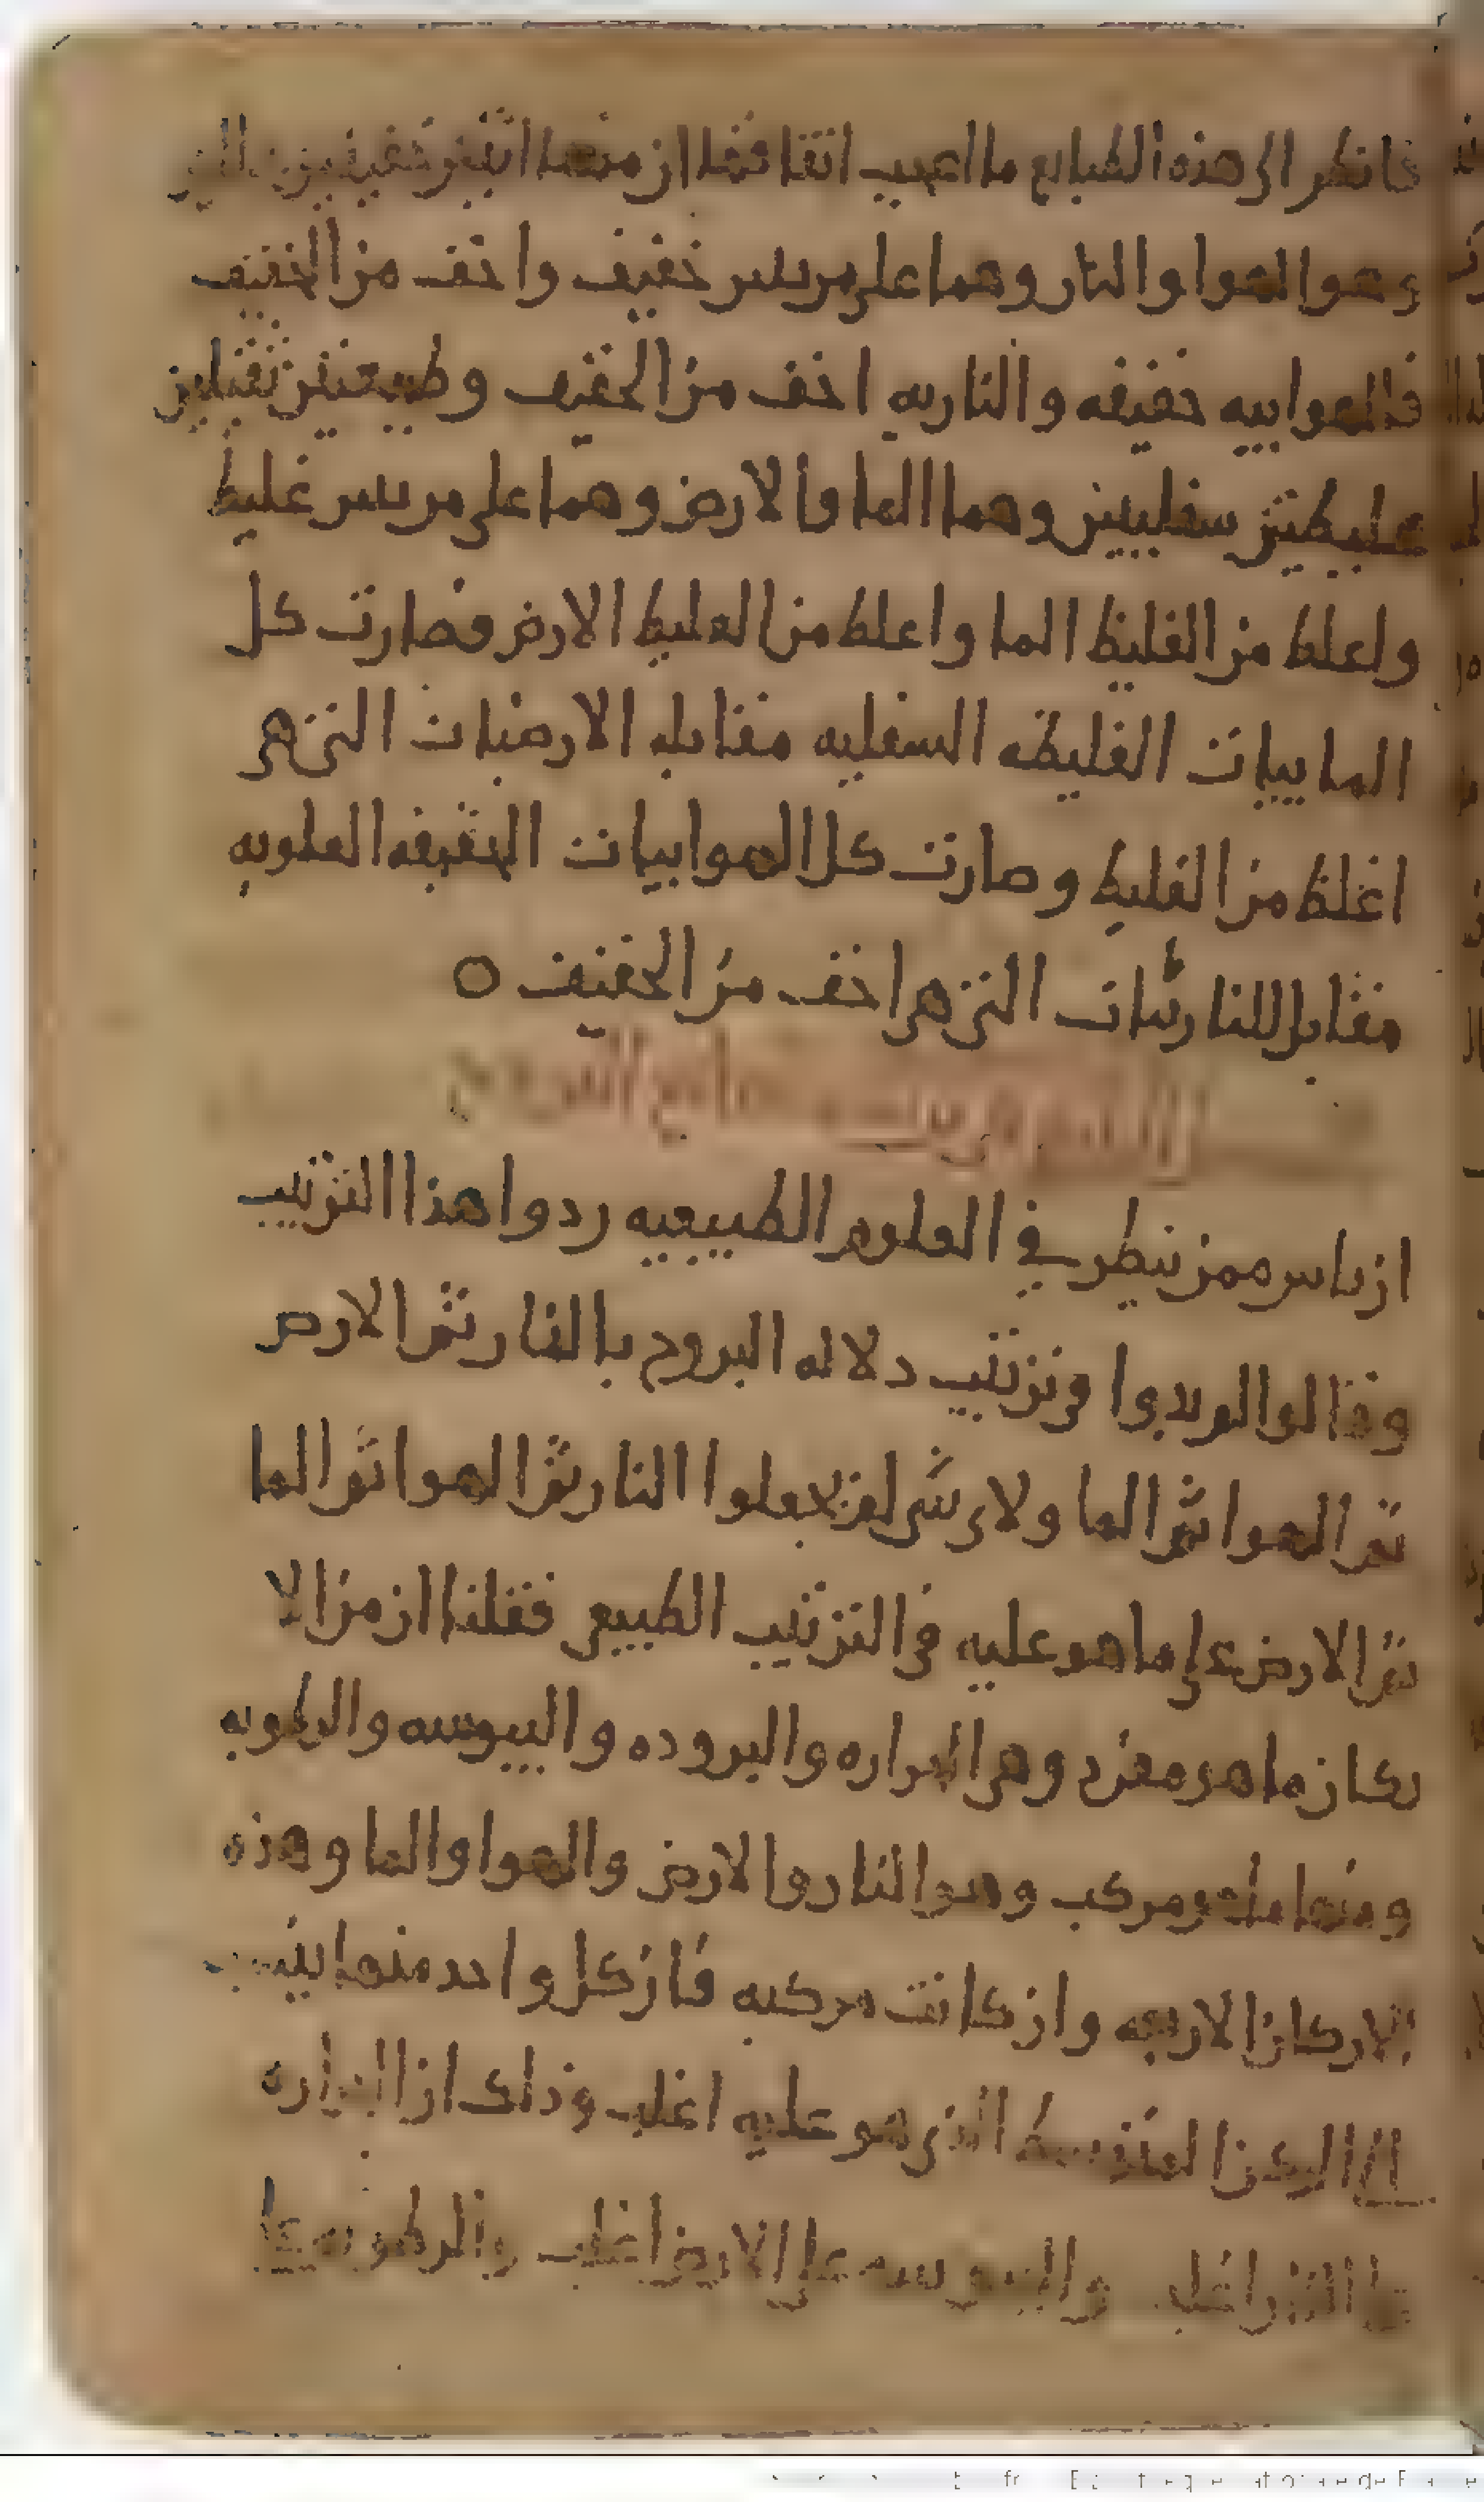 فانظر الى هذه الطبايع ما اعجب اتفاقها ان منها اثنين خفيفين
وهو الهوا والنار وهما على مرسر خفيف واخف من الخفيف
فالهواييه خفيفه والناريه اخف من الخفيف وطبيعتين ثقيلين
غليظتين سفليين وهما الما والارض وهما على مرسر غليظ
واغلظ من الغليظ الما واغلظ من الغليظ الارض فصارت كل
الماييات الغليظه السفليه مقابله الارضيات التى هى
اغلظ من الغليظ وصارت كل الهواييات الخفيفه العلويه
مقابل للناريات التى هى اخف من الخفيف ○
ان ناس ممن ينظر في العلوم الطبيعيه ردوا هذا الترتيب
وقالوا لم بدوا فى ترتيب دلاله البروج بالنار ثم الارض
ثم الهوا ثم الما ولاى شى لم يجعلوا النار ثم الهوا ثم الما
ثم الارض على ما هو عليه فى الترتيب الطبيعى فقلنا ان من الا
ركان ما هو مفرد وهى الحراره والبروده واليبوسه والرطوبه
ومنها ما هو مركب وهو النار والارض والهوا والما وهذه
الاركان الاربعه وان كانت مركبه فان كل واحد منها ينسب
الى الركن البسيط الذى هو عليه اغلب وذلك ان الحراره
على النار اغلب واليبوسه على الارض اغلب والرطوبه على